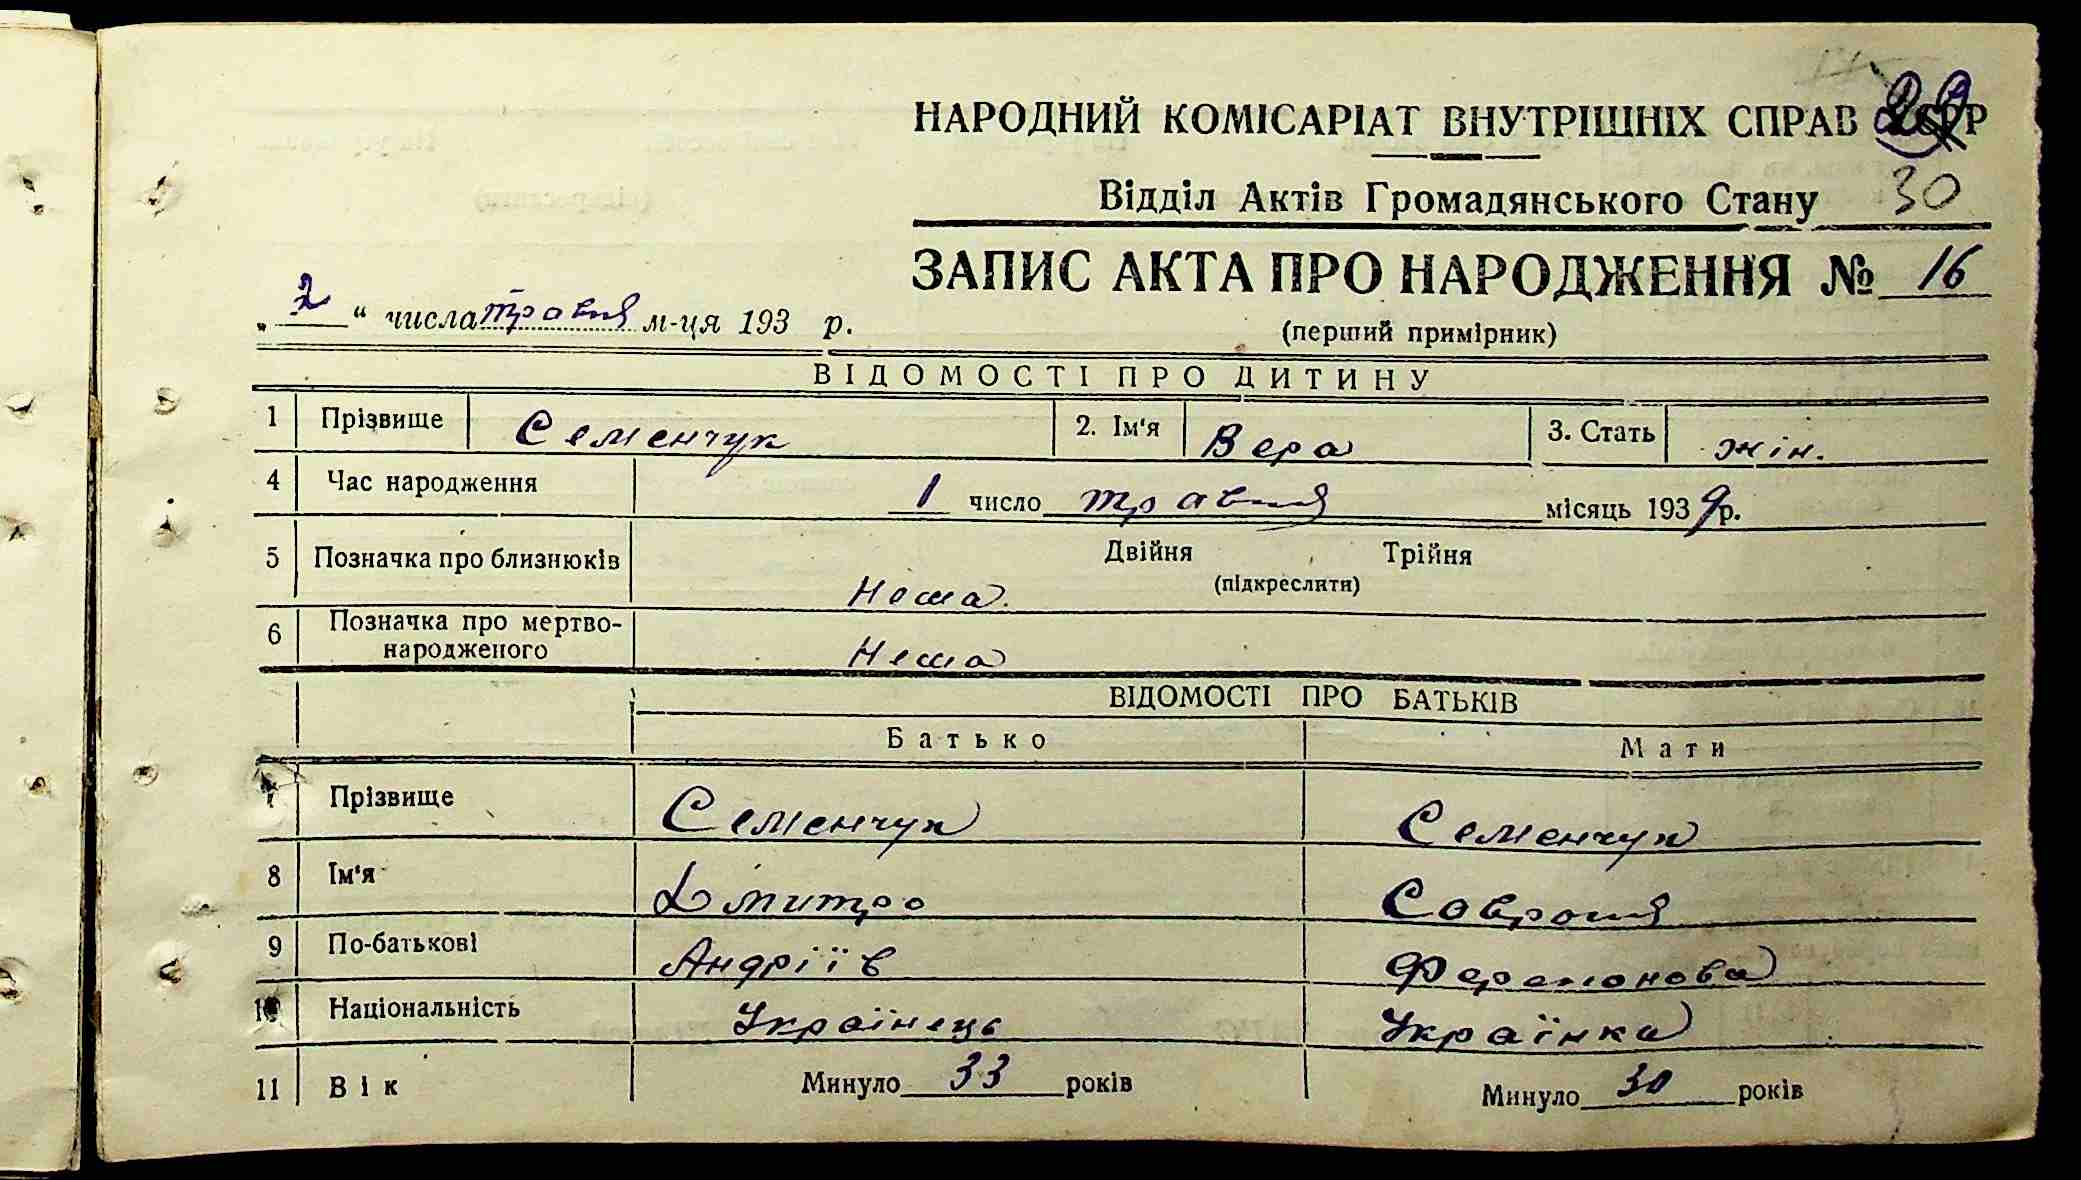 НАРОДНИЙ КОМІСАРІАТ ВНУТРІШНІХ СПРАВ
29
Відділ Актів Громадянського Стану 30
ЗАПИС АКТА ПРО НАРОДЖЕННЯ № 16
„ 2 “ числа травня м-ця 193 р.
(перший примірник)
ВІДОМОСТІ ПРО ДИТИНУ
1 Прізвище Семенчук 2. Ім'я Вера 3. Стать жін.
4 Час народження 1 число травня місяць 1939 р.
5 Позначка про близнюків Двійня Трійня
(підкреслити)
Нема.
6 Позначка про мертво-
народженого Нема
ВІДОМОСТІ ПРО БАТЬКІВ
Батько Мати
7 Прізвище Семенчук Семенчук
8 Ім'я Дмитро Савроня
9 По-батькові Андріїв
10 Національність Українець Українка
11 Вік Минуло 33 років Минуло 30 років